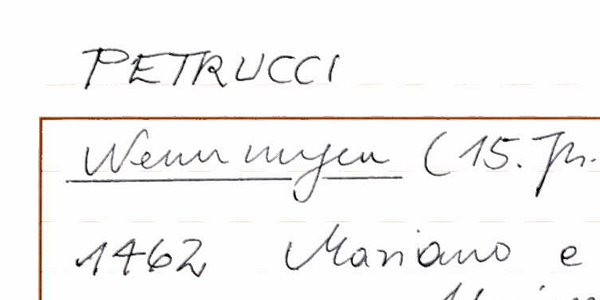 PETRUCCI
Nennungen (15. Jh.
1462 Mariano e